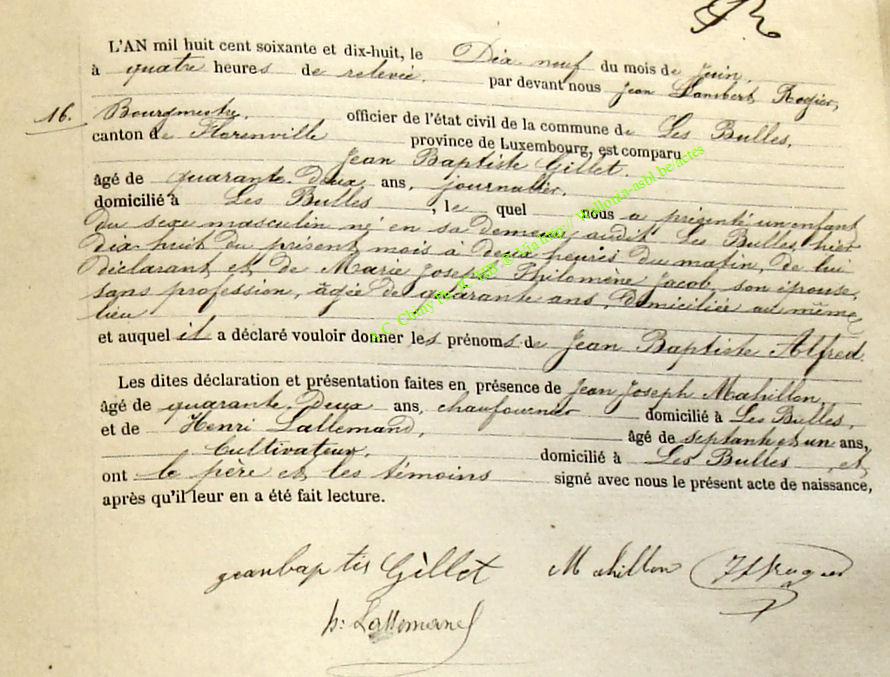 L'AN mil huit cent soixante et dix-huit, le Dix neuf du mois de Juin,
à quatre heures de relevée, par devant nous Jean Lambert Rogier,
16. Bourgmestre, officier de l'état civil de la commune de Les Bulles,
canton de Florenville province de Luxembourg, est comparu
Jean Baptiste Gillet,
âgé de quarante-deux ans, journalier,
domicilié à Les Bulles, le quel nous a présenté un enfant
du sexe masculin né en sa demeure audit Les Bulles, hier
dix-huit du présent mois à deux heures du matin, de lui
déclarant et de Marie Joseph Philomène Jacob, son épouse,
sans profession, âgée de quarante ans, domiciliée au même
lieu
et auquel il a déclaré vouloir donner les prénoms de Jean Baptiste Alfred.
Les dites déclaration et présentation faites en présence de Jean Joseph Mahillon,
âgé de quarante-deux ans, chaufournier domicilié à Les Bulles,
et de Henri Lallemand, âgé de septante et un ans,
Cultivateur, domicilié à Les Bulles, et
ont le père et les témoins signé avec nous le présent acte de naissance,
après qu'il leur en a été fait lecture.
jeanbaptis Gillet Mahillon
h: Lallemand